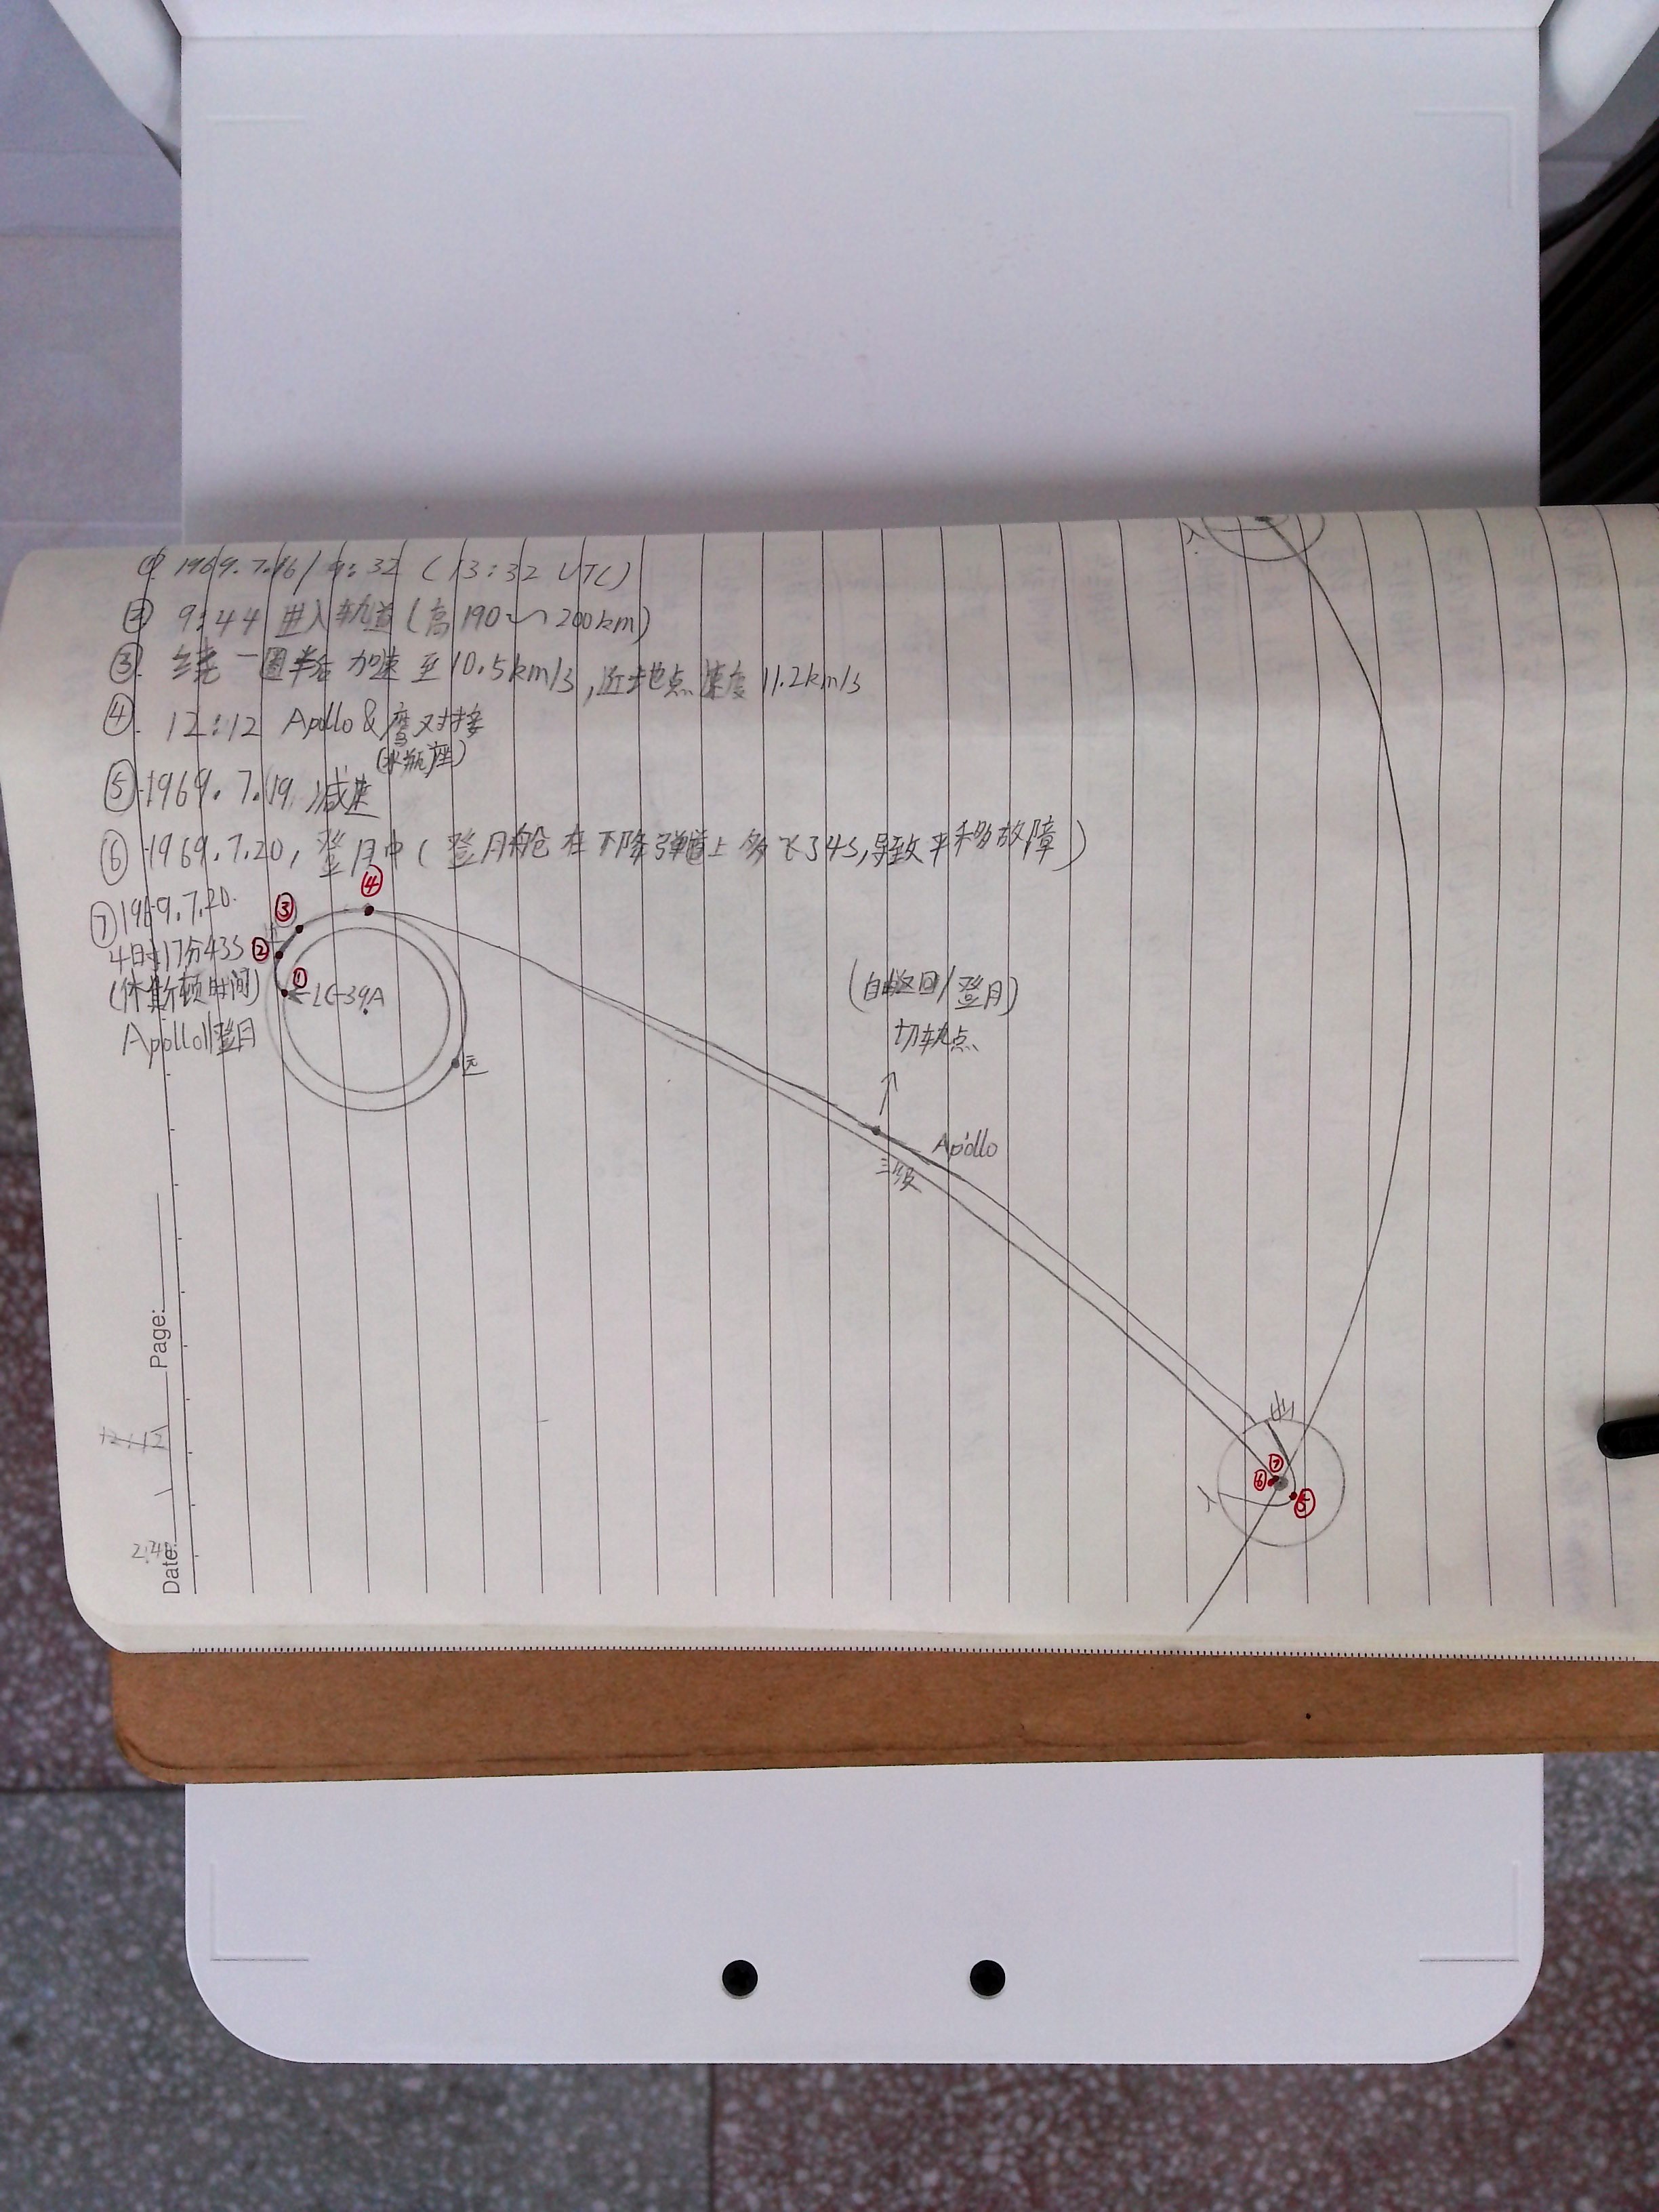 ① 1969.7.16/9:32 (13:32 UTC)
② 9:44 进入轨道(高190~200km)
③ 绕一圈半后 加速至10.5km/s,近地点速度11.2km/s
④ 12:12 Apollo & 鹰对接
(水瓶座)
⑤ 1969.7.19,减速
⑥ 1969.7.20,登月中(登月舱在下降弹道上多飞了4s,导致平移多故障)
⑦ 1969.7.20.
4时17分43s
(休斯顿时间)
Apollo11登月
④
③
②
①
LC-39A
远
(自由返回/登月)
切轨点
Apollo
三级
出
⑦
⑥
⑤
入
入
Page:
12:12
2:40
Date: